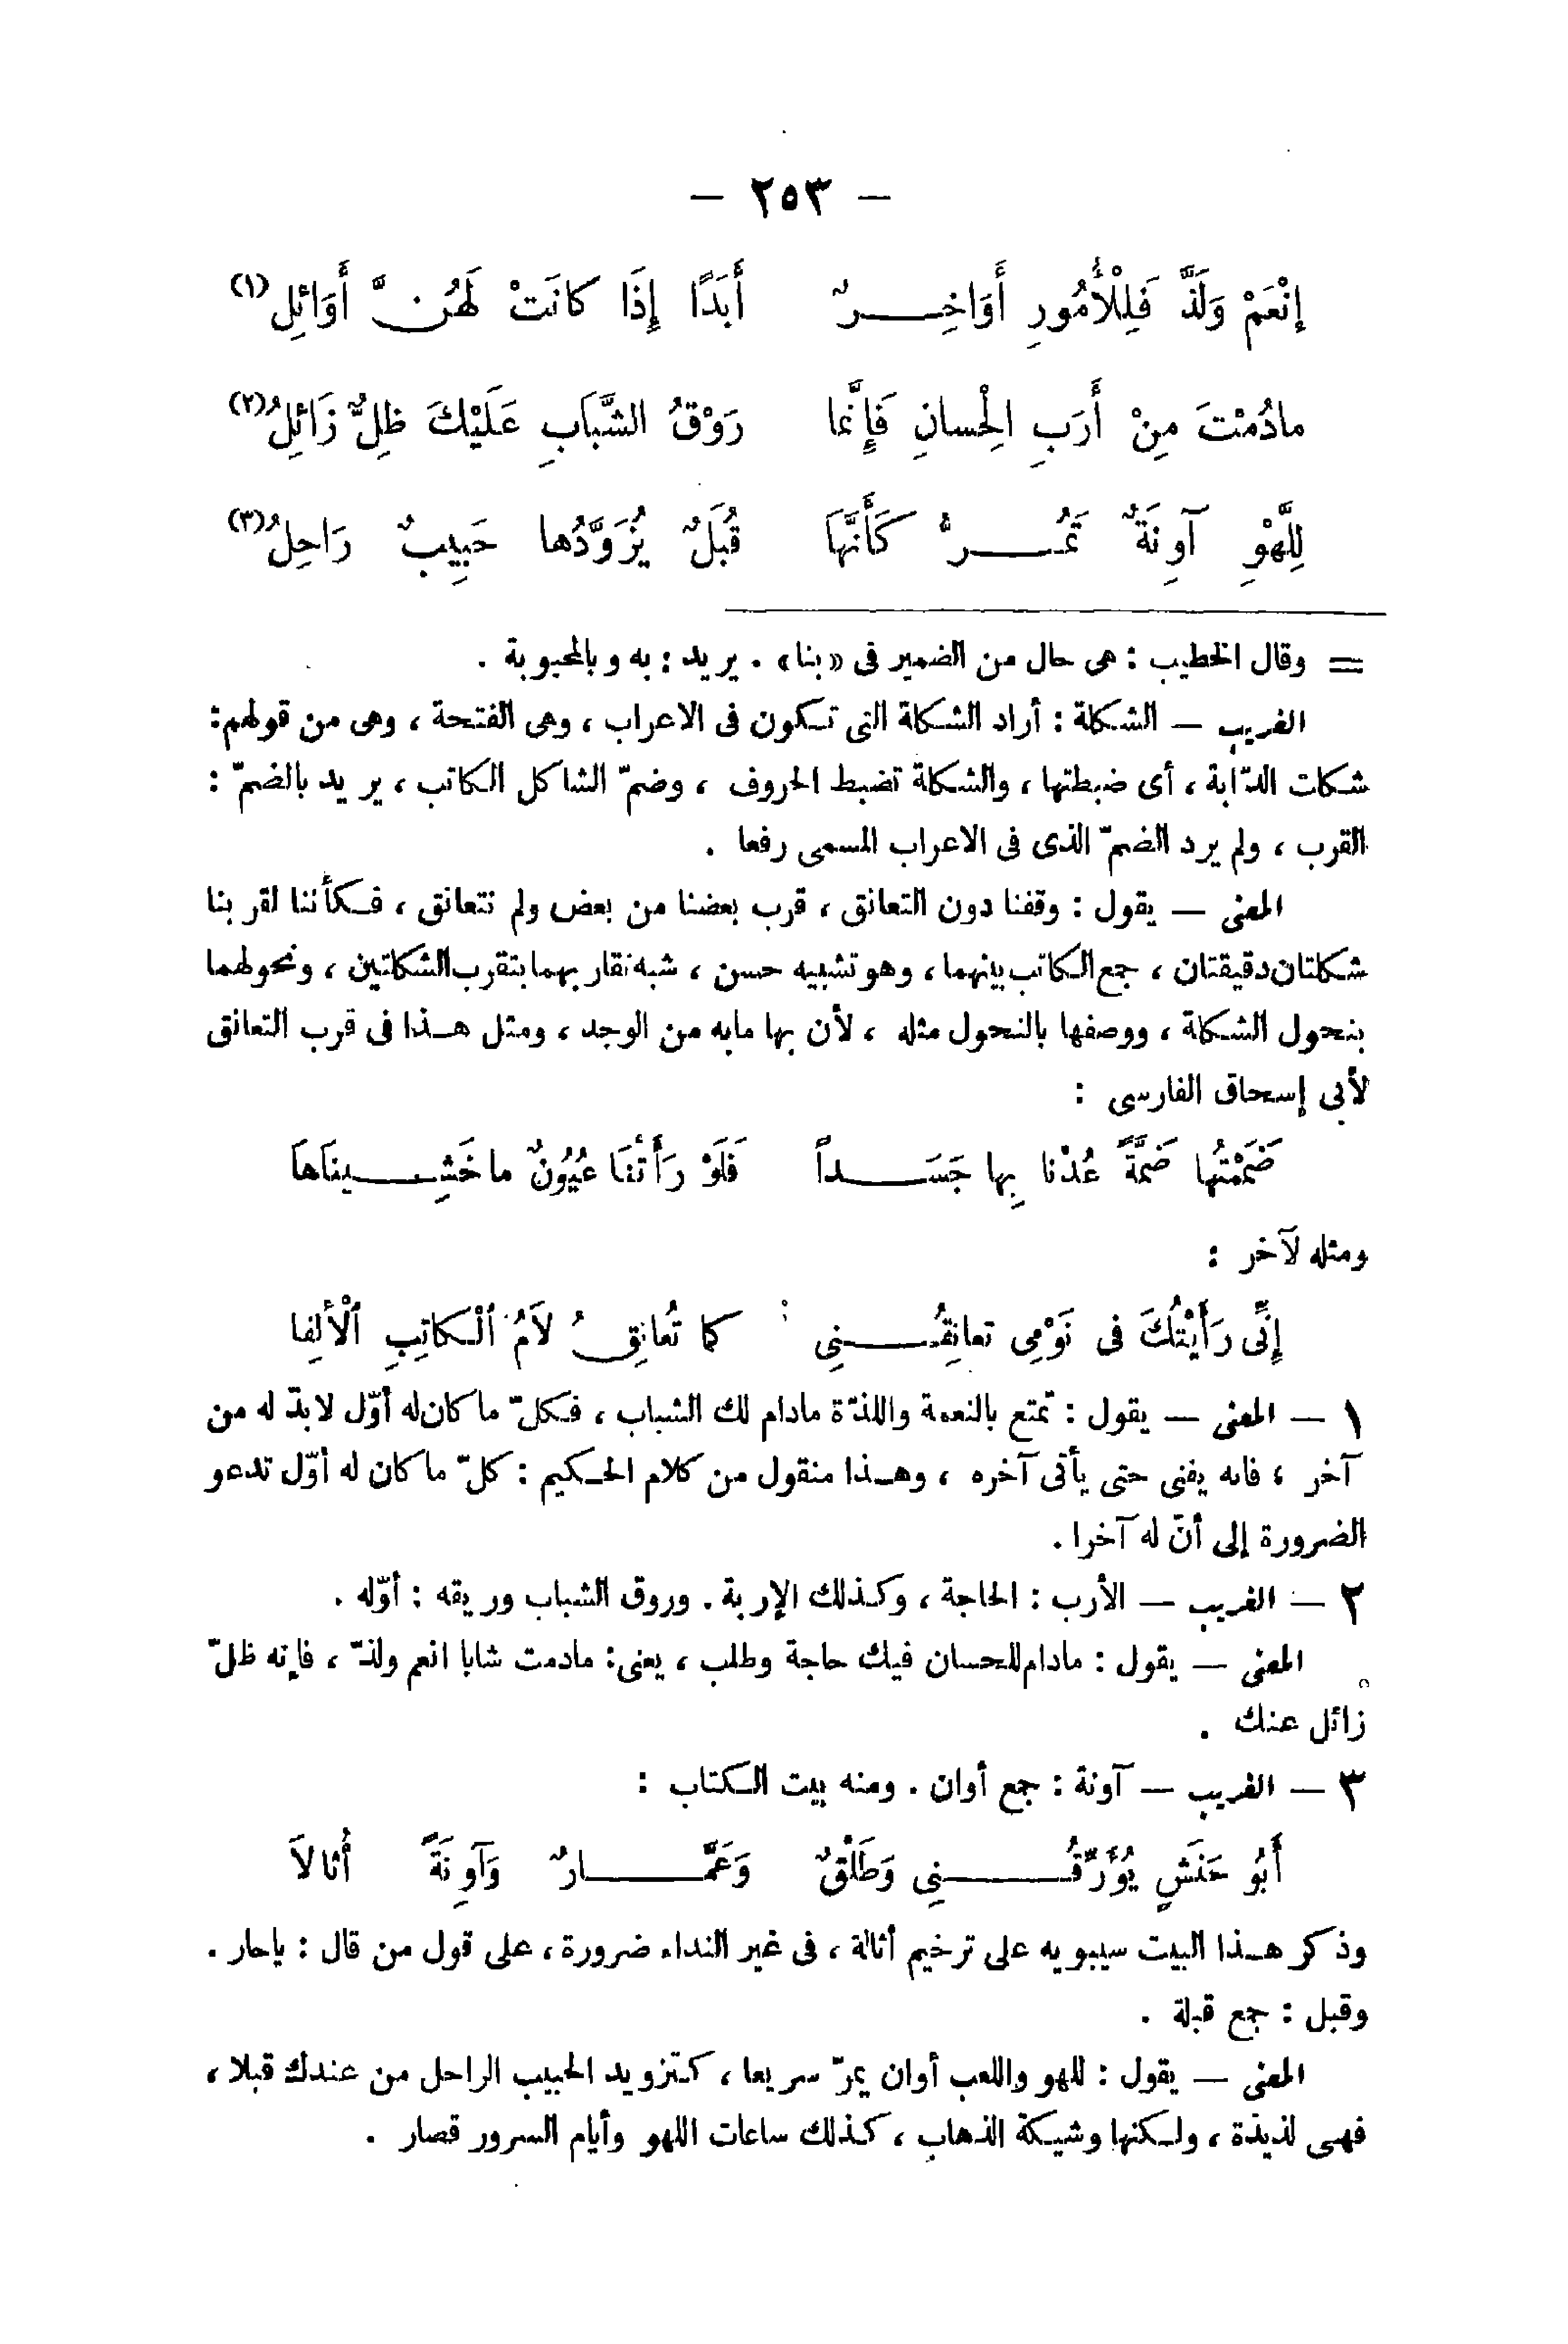 — ٢٥٣ —
إِنْعَمْ وَلَذَّ فَلِلْأُمُورِ أَوَاخِرٌ أَبَدًا إِذَا كانَتْ لَهُنَّ أَوَائِلِ (١)
مادُمْتَ مِنْ أَرَبِ الْحِسانِ فَإِنَّما رَوْقُ الشَّبَابِ عَلَيْكَ ظِلٌّ زَائِلُ (٢)
لِلَّهْوِ آوِنَةٌ تَمُرُّ كَأَنَّهَا قُبَلٌ يُزَوَّدُها حَبِيبٌ رَاحِلُ (٣)
= وقال الخطيب : هى حال من الضمير فى «بنا» . يريد : به وبالمحبوبة .
الغريب — الشكلة : أراد الشكلة التى تكون فى الاعراب ، وهى الفتحة ، وهى من قولهم :
شكلت الدّابة ، أى ضبطتها ، والشكلة تضبط الحروف ، وضمّ الشاكل الكاتب ، يريد بالضمّ :
القرب ، ولم يرد الضمّ الذى فى الاعراب المسمى رفعا .
المعنى — يقول : وقفنا دون التعانق ، قرب بعضنا من بعض ولم نتعانق ، فكأننا لقربنا
شكلتان دقيقتان ، جمع الكاتب بينهما ، وهو تشبيه حسن ، شبه تقاربهما بتقرب الشكلتين ، ونحولهما
بنحول الشكلة ، ووصفها بالنحول مثله ، لأن بها مابه من الوجد ، ومثل هذا فى قرب التعانق
لأبى إسحاق الفارسى :
ضَمَمْتُها ضَمَّةً عُدْنا بِها جَسَداً فَلَوْ رَأَتْنَا عُيُونٌ ماخَشِينَاهَا
ومثله لآخر :
إِنِّى رَأَيْتُكَ فى نَوْمِى تعانِقُنِى كما تُعانِقُ لاَمُ الْكاتِبِ الْألِفا
١ — المعنى — يقول : تمتع بالنعمة واللذّة مادام لك الشباب ، فكلّ ماكان له أوّل لابدّ له من
آخر ، فانه يفنى حتى يأتى آخره ، وهذا منقول من كلام الحكيم : كلّ ماكان له أوّل تدعو
الضرورة إلى أنّ له آخرا .
٢ — الغريب — الأرب : الحاجة ، وكذلك الإربة . وروق الشباب وريقه : أوّله .
المعنى — يقول : مادام للحسان فيك حاجة وطلب ، يعنى : مادمت شابا انعم ولذّ ، فإنه ظلّ
زائل عنك .
٣ — الغريب — آونة : جمع أوان . ومنه بيت الكتاب :
أَبُو حَنَشٍ يُؤَرِّقُنِى وَطَلْقٌ وَعَمَّارٌ وَآوِنَةً أُثالاَ
وذكر هذا البيت سيبويه على ترخيم أثالة ، فى غير النداء ضرورة ، على قول من قال : ياحار .
وقبل : جمع قبلة .
المعنى — يقول : للهو واللعب أوان يمرّ سريعا ، كتزويد الحبيب الراحل من عندك قبلا ،
فهى لذيذة ، ولكنها وشيكة الذهاب ، كذلك ساعات اللهو وأيام السرور قصار .